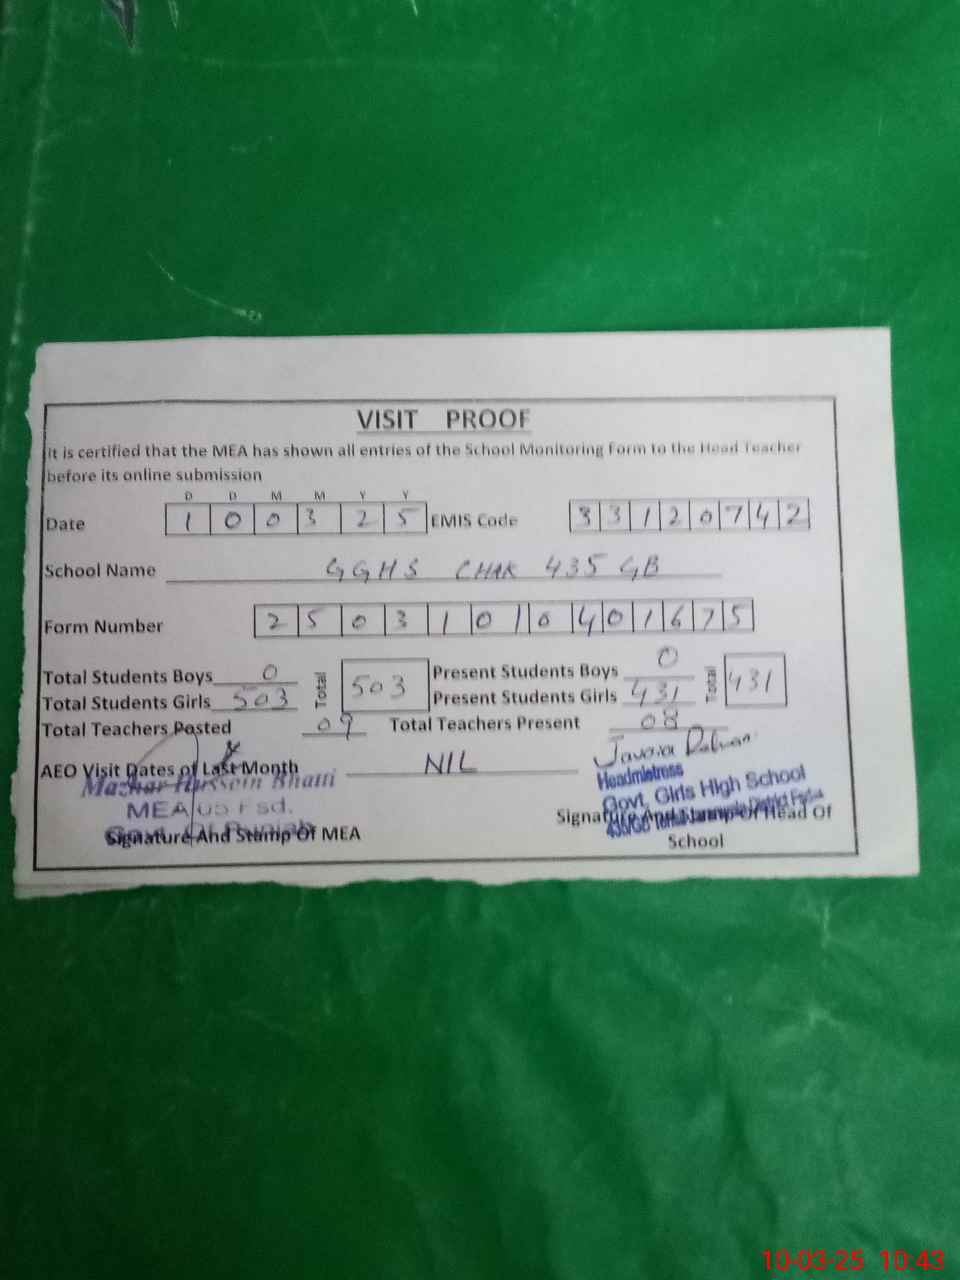 VISIT PROOF
It is certified that the MEA has shown all entries of the School Monitoring Form to the Head Teacher
before its online submission
D D M M Y Y
Date 1 0 0 3 2 5 EMIS Code 3 3 1 2 0 7 4 2
School Name GGHS CHAK 435 GB
Form Number 2 5 0 3 1 0 1 0 4 0 1 6 7 5
Total Students Boys 0 Total 503 Present Students Boys 0 Total 431
Total Students Girls 503 Present Students Girls 431
Total Teachers Posted 09 Total Teachers Present 08
AEO Visit Dates of Last Month NIL
Javaria
Mazhar Hussein Bhatti
Headmistress
MEA 05 Fsd.
Govt. Girls High School
Govt. Of Punjab
435/GB District
Signature And Stamp Of MEA
Signature And Stamp Of Head Of
School
10-03-25 10:43